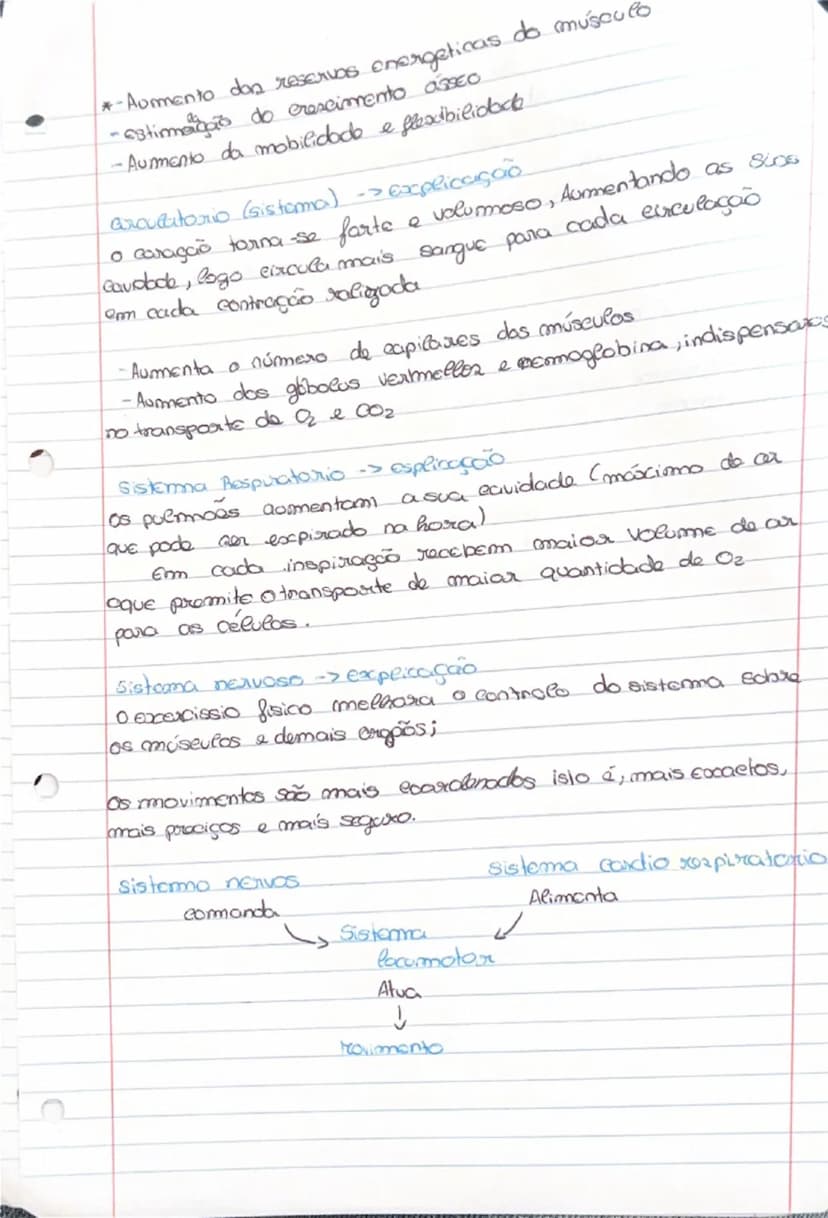 *-Aumento das reservas energeticas do músculo
-estimação do crescimento ósseo
-Aumento da mobilidade e flexibilidade
circulatorio (sistema) -> explicação
o coração torna-se forte e volumoso, Aumentando as suas
cavidade, logo circula mais sangue para cada circulação
em cada contração realizada
-Aumenta o número de capilares dos músculos
-Aumento dos glóbolus vermelhos e hemoglobina, indispensaveis
no transporte de O2 e CO2
Sistema Respiratorio -> esplicação
os pulmoões aumentam a sua cavidade (máximo de ar
que pode ser expirado na hora)
Em cada inspiração recebem maior volume de ar
oque promite o transporte de maior quantidade de O2
para as células.
Sistema nervoso -> explicação
O exercissio fisico melhora o controlo do sistema sobre
os músculos e demais orgãos;
Os movimentos são mais coordenados isto é, mais exactos,
mais precisos e mais seguro.
sistema nervos
sistema cardio respiratorio
comanda
Alimenta
Sistema
locomotor
Atua
movimento